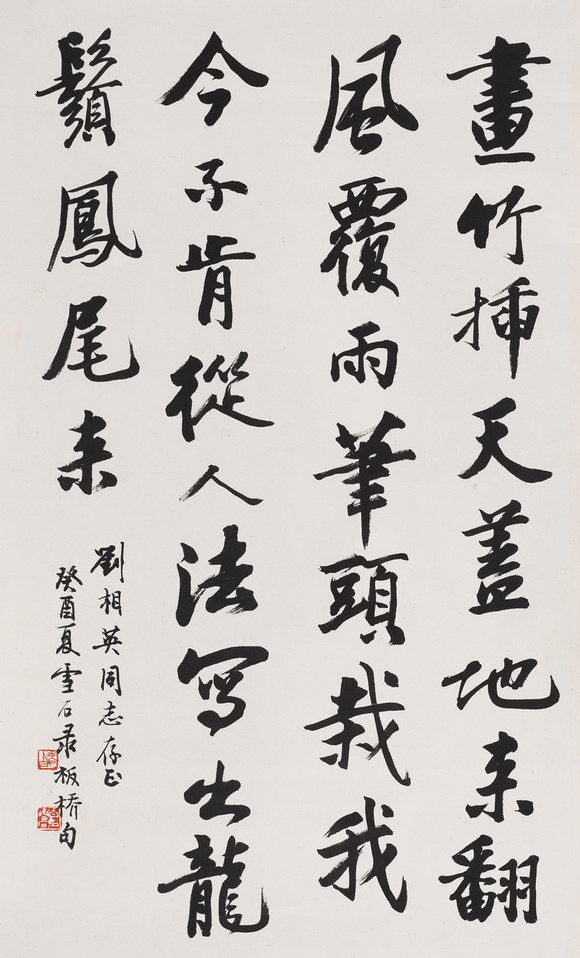 畫竹插天蓋地来翻
風覆雨筆頭栽我
今不肯從人法寫出龍
鬚鳳尾来
劉相英同志存正
癸酉夏雪石录板橋句